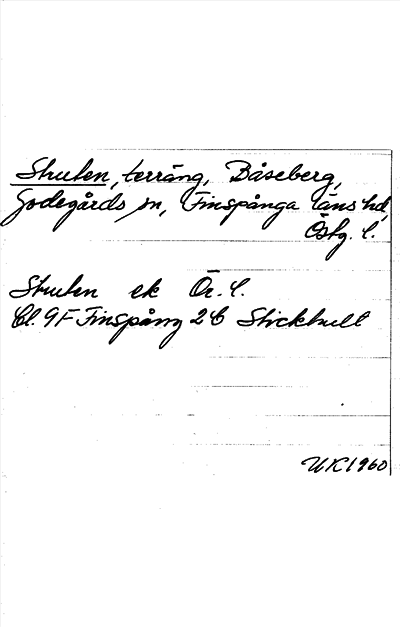 Struten, terräng, Båseberg,
Godegårds sn, Finspånga läns hd,
Östg. l.
Struten ek Ör. l.
Bl. 9F Finspång 2b Stickhult
UK 1960